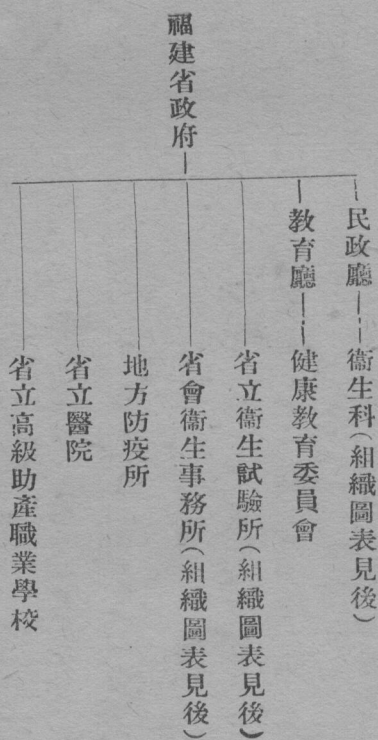 福建省政府
民政廳——衞生科(組織圖表見後)
教育廳——健康教育委員會
省立衞生試驗所(組織圖表見後)
省會衞生事務所(組織圖表見後)
地方防疫所
省立醫院
省立高級助產職業學校